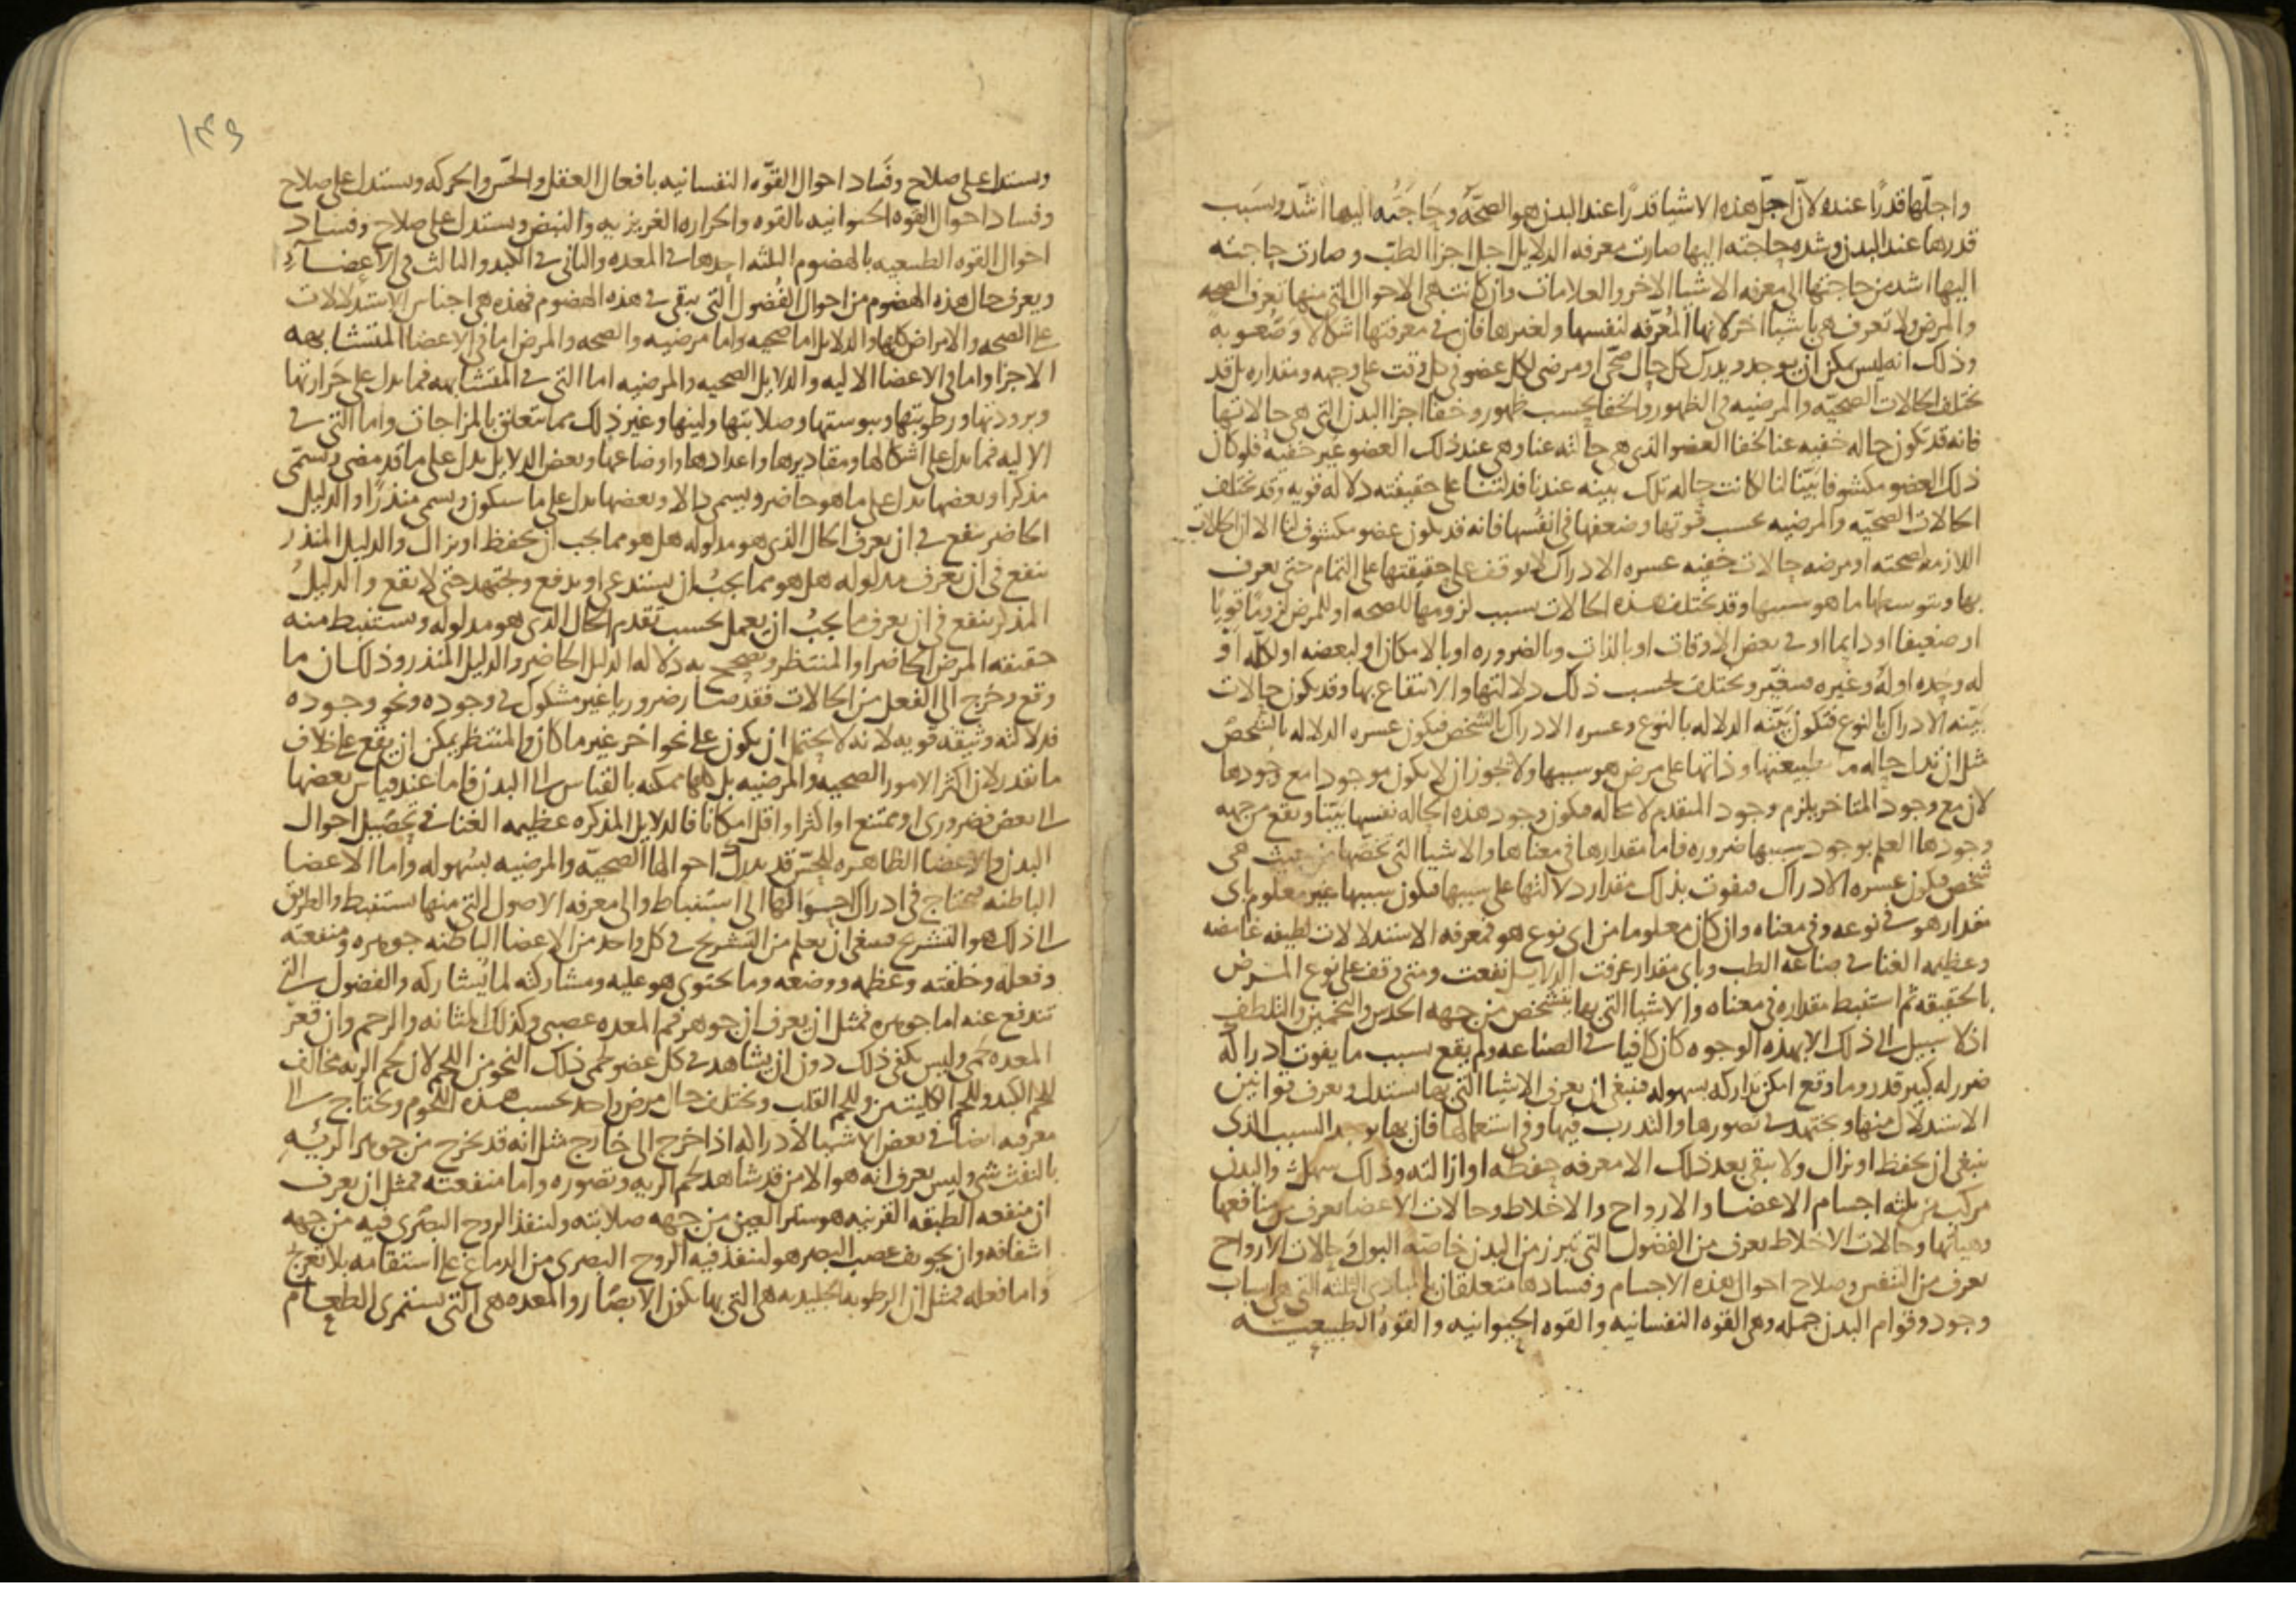 واجلّها قدرًا عنده لانّ اجلّ هذه الاشيا قدرًا عند البدن هو الصحّه وحاجته اليها اشدّ وبسبب
قدرها عند البدن وشده حاجته اليها صارت معرفه الدلايل اجل اجزا الطبّ وصارت حاجته
اليها اشد من حاجتها الى معرفه الاشيا الاخر والعلامات وان كانت هى الاحوال التى منها تعرف الصحه
والمرض ولا تعرف هى باشيا اخر لانها المُعرّفه لنفسها ولغيرها فان فى معرفتها اشكالا وصُعوبه
وذلك انه ليس يمكن ان يوجد ويدرك كل حال صحّى او مرضى لكل عضو فى كل وقت على وجهه ومقداره بل قد
تختلف الحالات الصحيّه والمرضيه فى الظهور والخفا بحسب ظهور وخفا اجزا البدن التى هى حالاتها
فانه قد تكون حاله خفيه عنا لخفا العضو الذى هى حالته عنا وهى عند ذلك العضو غير خفيّه فلو كان
ذلك العضو مكشوفا بيّنا لنا لكانت حاله تلك بينه عندنا فدلتنا على حقيقته دلاله قويه وقد تختلف
الحالات الصحيّه والمرضيه بحسب قوتها وضعفها فى انفُسها فانه قد يكون عضو مكشوف لنا الا ان الحالات
اللازمه لصحته او مرضه حالات خفيه عسره الادراك لا يوقف على حقيقتها على التمام حتى يعرف
بها وبتوسطها ما هو سببها وقد تختلف هذه الحالات بسبب لزومها للصحه او للمرض لزومًا قويًا
او ضعيفا او دايما او فى بعض الاوقات او بالذات وبالضروره او بالامكان او لبعضه او لكلّه او
له وحده او له وغيره فتتغيّر وتختلف بحسب ذلك دلالتها والانتفاع بها وقد يكون حالات
بيّنه الادراك بالنوع فتكون بيّنه الدلاله بالنوع وعسره الادراك بالشخص فيكون عسره الدلاله بالشخص
مثل ان تدل حاله ما بطبيعتها وذاتها على مرض هو سببها ولا يجوز ان لا يكون موجودا مع وجودها
لان مع وجود المتاخر يلزم وجود المتقدم لا محاله فيكون وجود هذه الحاله نفسها بيّنا ويقع من جهه
وجودها العلم بوجود سببها ضروره فاما مقدارها فى معناها والاشيا التى تخصّها من حيث هى
شخص فيكون عسره الادراك فيفوت بذلك مقدار دلالتها على سببها فيكون سببها غير معلوم باى
مقدار هو فى نوعه وفى معناه وان كان معلوما من اى نوع هو فمعرفه الاستدلالات لطيفه غامضه
وعظيمه الغنا فى صناعه الطب وباى مقدار عرفت الدلايل نفعت ومتى وقف على نوع المرض
بالحقيقه ثم استنبط مقداره فى معناه والاشيا التى بها يتشخص من جهه الحدس والتخمين والتلطف
اذ لا سبيل الى ذلك الا بهذه الوجوه كان كافيا فى الصناعه ولم يقع بسبب ما يفوت ادراكه
ضرر له كبير قدر وما وقع امكن تداركه بسهوله فينبغى ان يعرف الاشيا التى بها يستدل ويعرف قوانين
الاستدلال منها ويجتهد فى تصورها والتدرب فيها وفى استعمالها فان بها يوجد السبب الذى
ينبغى ان يحفظ او يزال ولا يبقى بعد ذلك الا معرفه حفظه او ازالته وذلك سهل والبدن
مركب من ثلثه اجسام الاعضا والارواح والاخلاط وحالات الاعضا يعرف من منافعها
وهياتها وحالات الاخلاط يعرف من الفضول التى تبرز من البدن خاصّه البول وحالات الارواح
يعرف من النفس وصلاح احوال هذه الاجسام وفسادها متعلقان بالمبادى الثلثه التى هى اسباب
وجود وقوام البدن جمله وهى القوه النفسانيه والقوه الحيوانيه والقوهُ الطبيعيه
١٣٩
ويستدل على صلاح وفَساد احوال القوّه النفسانيه بافعال العقل والحسّ والحركه ويستدل على صلاح
وفساد احوال القوه الحيوانيه بالقوه والحراره الغريزيه والنبض ويستدل على صلاح وفساد
احوال القوه الطبيعيه بالهضوم الثلثه احدها فى المعده والثانى فى الكبد والثالث فى الاعضآء
ويعرف حال هذه الهضوم من احوال الفُضول التى يبقى فى هذه الهضوم فهذه هى اجناس الاستدلالات
على الصحه والامراض كلها والدلايل اما صحيه واما مرضيه والصحه والمرض اما فى الاعضا المتشابهه
الاجزا واما فى الاعضا الاليه والدلايل الصحيه والمرضيه اما التى فى المتشابهه فما يدل على حَرارتها
وبرودتها ورطوبتها ويبوستها وصلابتها ولينها وغير ذلك مما يتعلق بالمزاجات واما التى فى
الاليه فما يدل على اشكالها ومقاديرها واعدادها واوضاعها وبعض الدلايل يدل على ما قد مضى ويسمّى
مذكرا وبعضها يدل على ما هو حاضر ويسمى دالا وبعضها يدل على ما سيكون ويسمى منذرًا والدليل
الحاضر ينفع فى ان يعرف الحال الذى هو مدلوله هل هو مما يجب ان يحفظ او يزال والدليل المنذر
ينفع فى ان يعرف مدلوله هل هو مما يجبُ ان يستدعى او يدفع ويجتهد حتى لا يقع والدليلُ
المذكر ينفع فى ان يعرف ما يجبُ ان يعمل بحسب تقدم الحال الذى هو مدلوله ويستنبط منه
حقيقه المرض الحاضر او المنتظر ويصحح به دلاله الدليل الحاضر والدليل المنذر وذلك ان ما
وقع وخرج الى الفعل من الحالات فقد صار ضروريا غير مشكوك فى وجوده ونحو وجوده
فدلالته وثيقه قويه لانه لا يحتمل ان يكون على نحو اخر غير ما كان والمنتظر يمكن ان يقع على خلاف
ما نقدر لان اكثر الامور الصحيه والمرضيه بل كلها ممكنه بالقياس الى البدن فاما عند قياس بعضها
الى بعض فضرورى او ممتنع او اكثر او اقل امكانا فالدلايل المذكره عظيمه الغنا فى تحصيل احوال
البدن والاعضا الظاهره للحسّ قد يدرك احوالها الصحيّه والمرضيه بسُهوله واما الاعضا
الباطنه فيحتاج فى ادراك احوالها الى استنباط والى معرفه الاصول التى منها يستنبط والطريق
الى ذلك هو التشريح فينبغى ان يعلم من التشريح فى كل واحد من الاعضا الباطنه جوهره ومنفعته
وفعله وخلقته وعظمه ووضعه وما يحتوى هو عليه ومشاركته لما يشاركه والفضول التى
تندفع عنه اما جوهره فمثل ان يعرف ان جوهر فم المعده عصبى وكذلك المثانه والرحم وان قعر
المعده لحمى وليس يكفى ذلك دون ان يشاهد فى كل عضو لحمى ذلك النحو من اللحم لان لحم الريه مخالف
للحم الكبد وللحم الكليتين وللحم القلب ويختلف حال مرض واحد بحسب هذه اللحوم ويحتاج الى
معرفه ايضا فى بعض الاشيا لادراكه اذا خرج الى خارج مثل انه قد يخرج من جوهر الريه
بالنفث شى وليس يعرف انه هو الا من قد شاهد لحم الريه وتصوره واما منفعته فمثل ان يعرف
ان منفعه الطبقه القرنيه هو ستر العين من جهه صلابته ولنفذ الروح البصرى فيه من جهه
اشفافه وان تجويف عصب البصر هو لينفذ فيه الروح البصرى من الدماغ على استقامه بلا تعرّج
واما فعله فمثل ان الرطوبه الجليديه هى التى بها يكون الابصار والمعده هى التى يستمرى الطعام